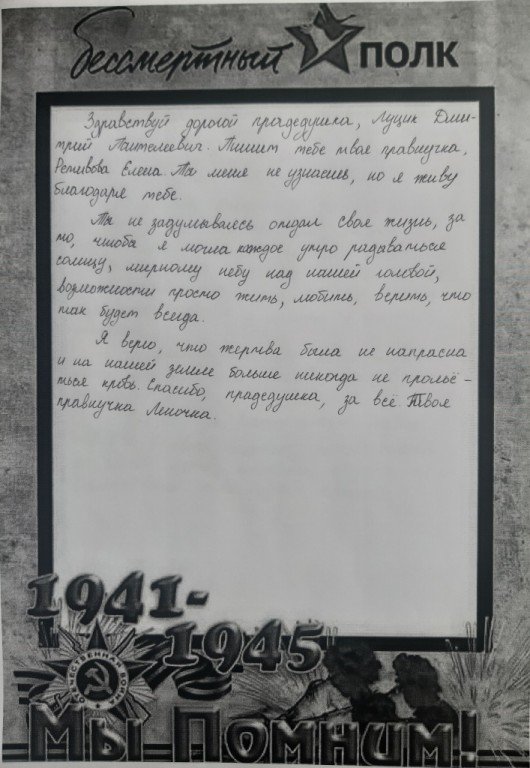 бессмертный полк
Здравствуй дорогой прадедушка, Луцик Дми-
трий Пантелеевич. Пишет тебе твая правнучка,
Елена. Ты меня не узнаешь, но я живу
благодаря тебе.
Ты не задумываясь отдал свою жизнь, за
то, чтобы я могла каждое утро радываться
солнцу, мирному небу над нашей головой,
возможности просто жить, любить, верить, что
так будет всегда.
Я верю, что жертва была не напрасна
и на нашей земле больше никогда не прольё-
ться кровь. Спасибо, прадедушка, за всё. Твоя
правнучка Леночка.
1941-
1945
ОТЕЧЕСТВЕННАЯ ВОЙНА
Мы Помним!